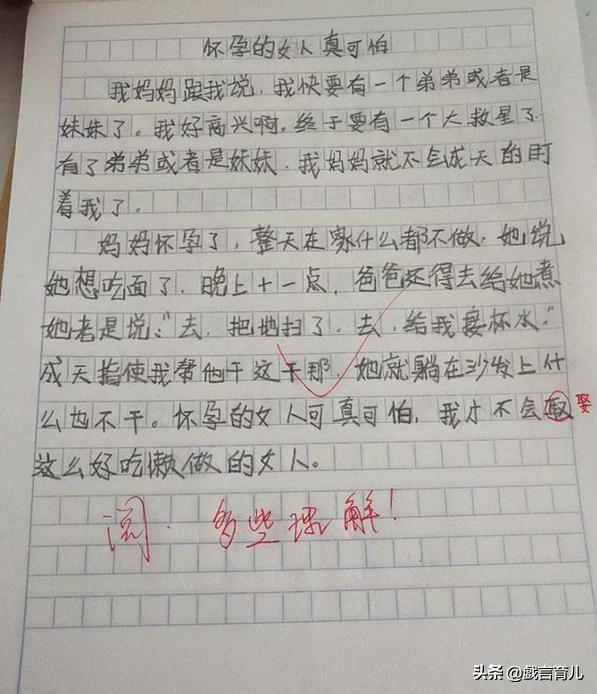 怀孕的女人真可怕
我妈妈跟我说，我快要有一个弟弟或者是
妹妹了。我好高兴啊，终于要有一个大救星了
有了弟弟或者是妹妹，我妈妈就不会成天的盯
着我了。
妈妈怀孕了，整天在家什么都不做，她说
她想吃面了，晚上十一点，爸爸还得去给她煮
她老是说："去，把地扫了，去，给我端杯水"
成天指使我帮他干这干那，她就躺在沙发上什
么也不干。怀孕的女人可真可怕，我才不会取 娶
这么好吃懒做的女人。
阅．多些理解！
头条 @戲言育儿